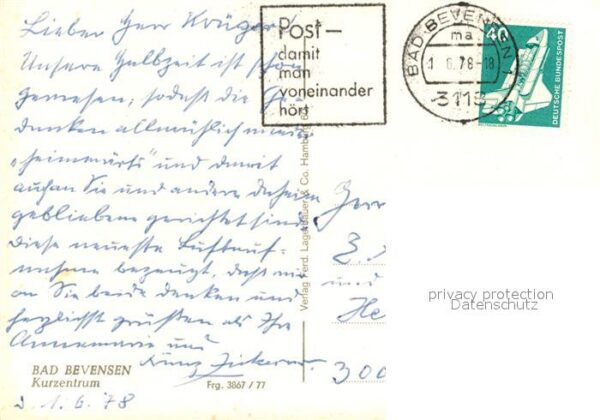 Lieber Herr Krüger!
Unsere Halbzeit ist schon
gewesen, sodaß die Ge-
danken allmählich wieder
"heimwärts" und damit
auch an Sie und andere daheim
gebliebene gerichtet sind.
Diese neueste Luftauf-
nahme bezeugt, daß wir
an Sie beide denken und
herzlichst grüßen als Ihre
Annemarie und
BAD BEVENSEN
Kurzentrum
Frg. 3867 / 77
d. 1.6.78
Post –
damit
man
voneinander
hört
BAD BEVENSEN 1
ma
1. 6. 78 - 18
3118
40
DEUTSCHE BUNDESPOST
Verlag Ferd. Lagerbauer & Co. Hamburg
Herr
und
He
300
privacy protection
Datenschutz